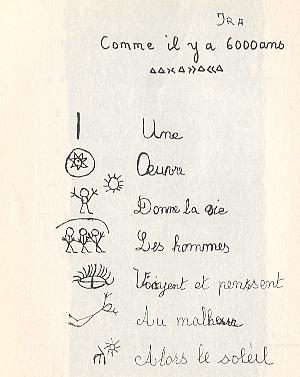 IRA
Comme il y a 6000 ans
Une
Œuvre
Donne la vie
Les hommes
Voiyent et penssent
Au malheur
Alors le soleil